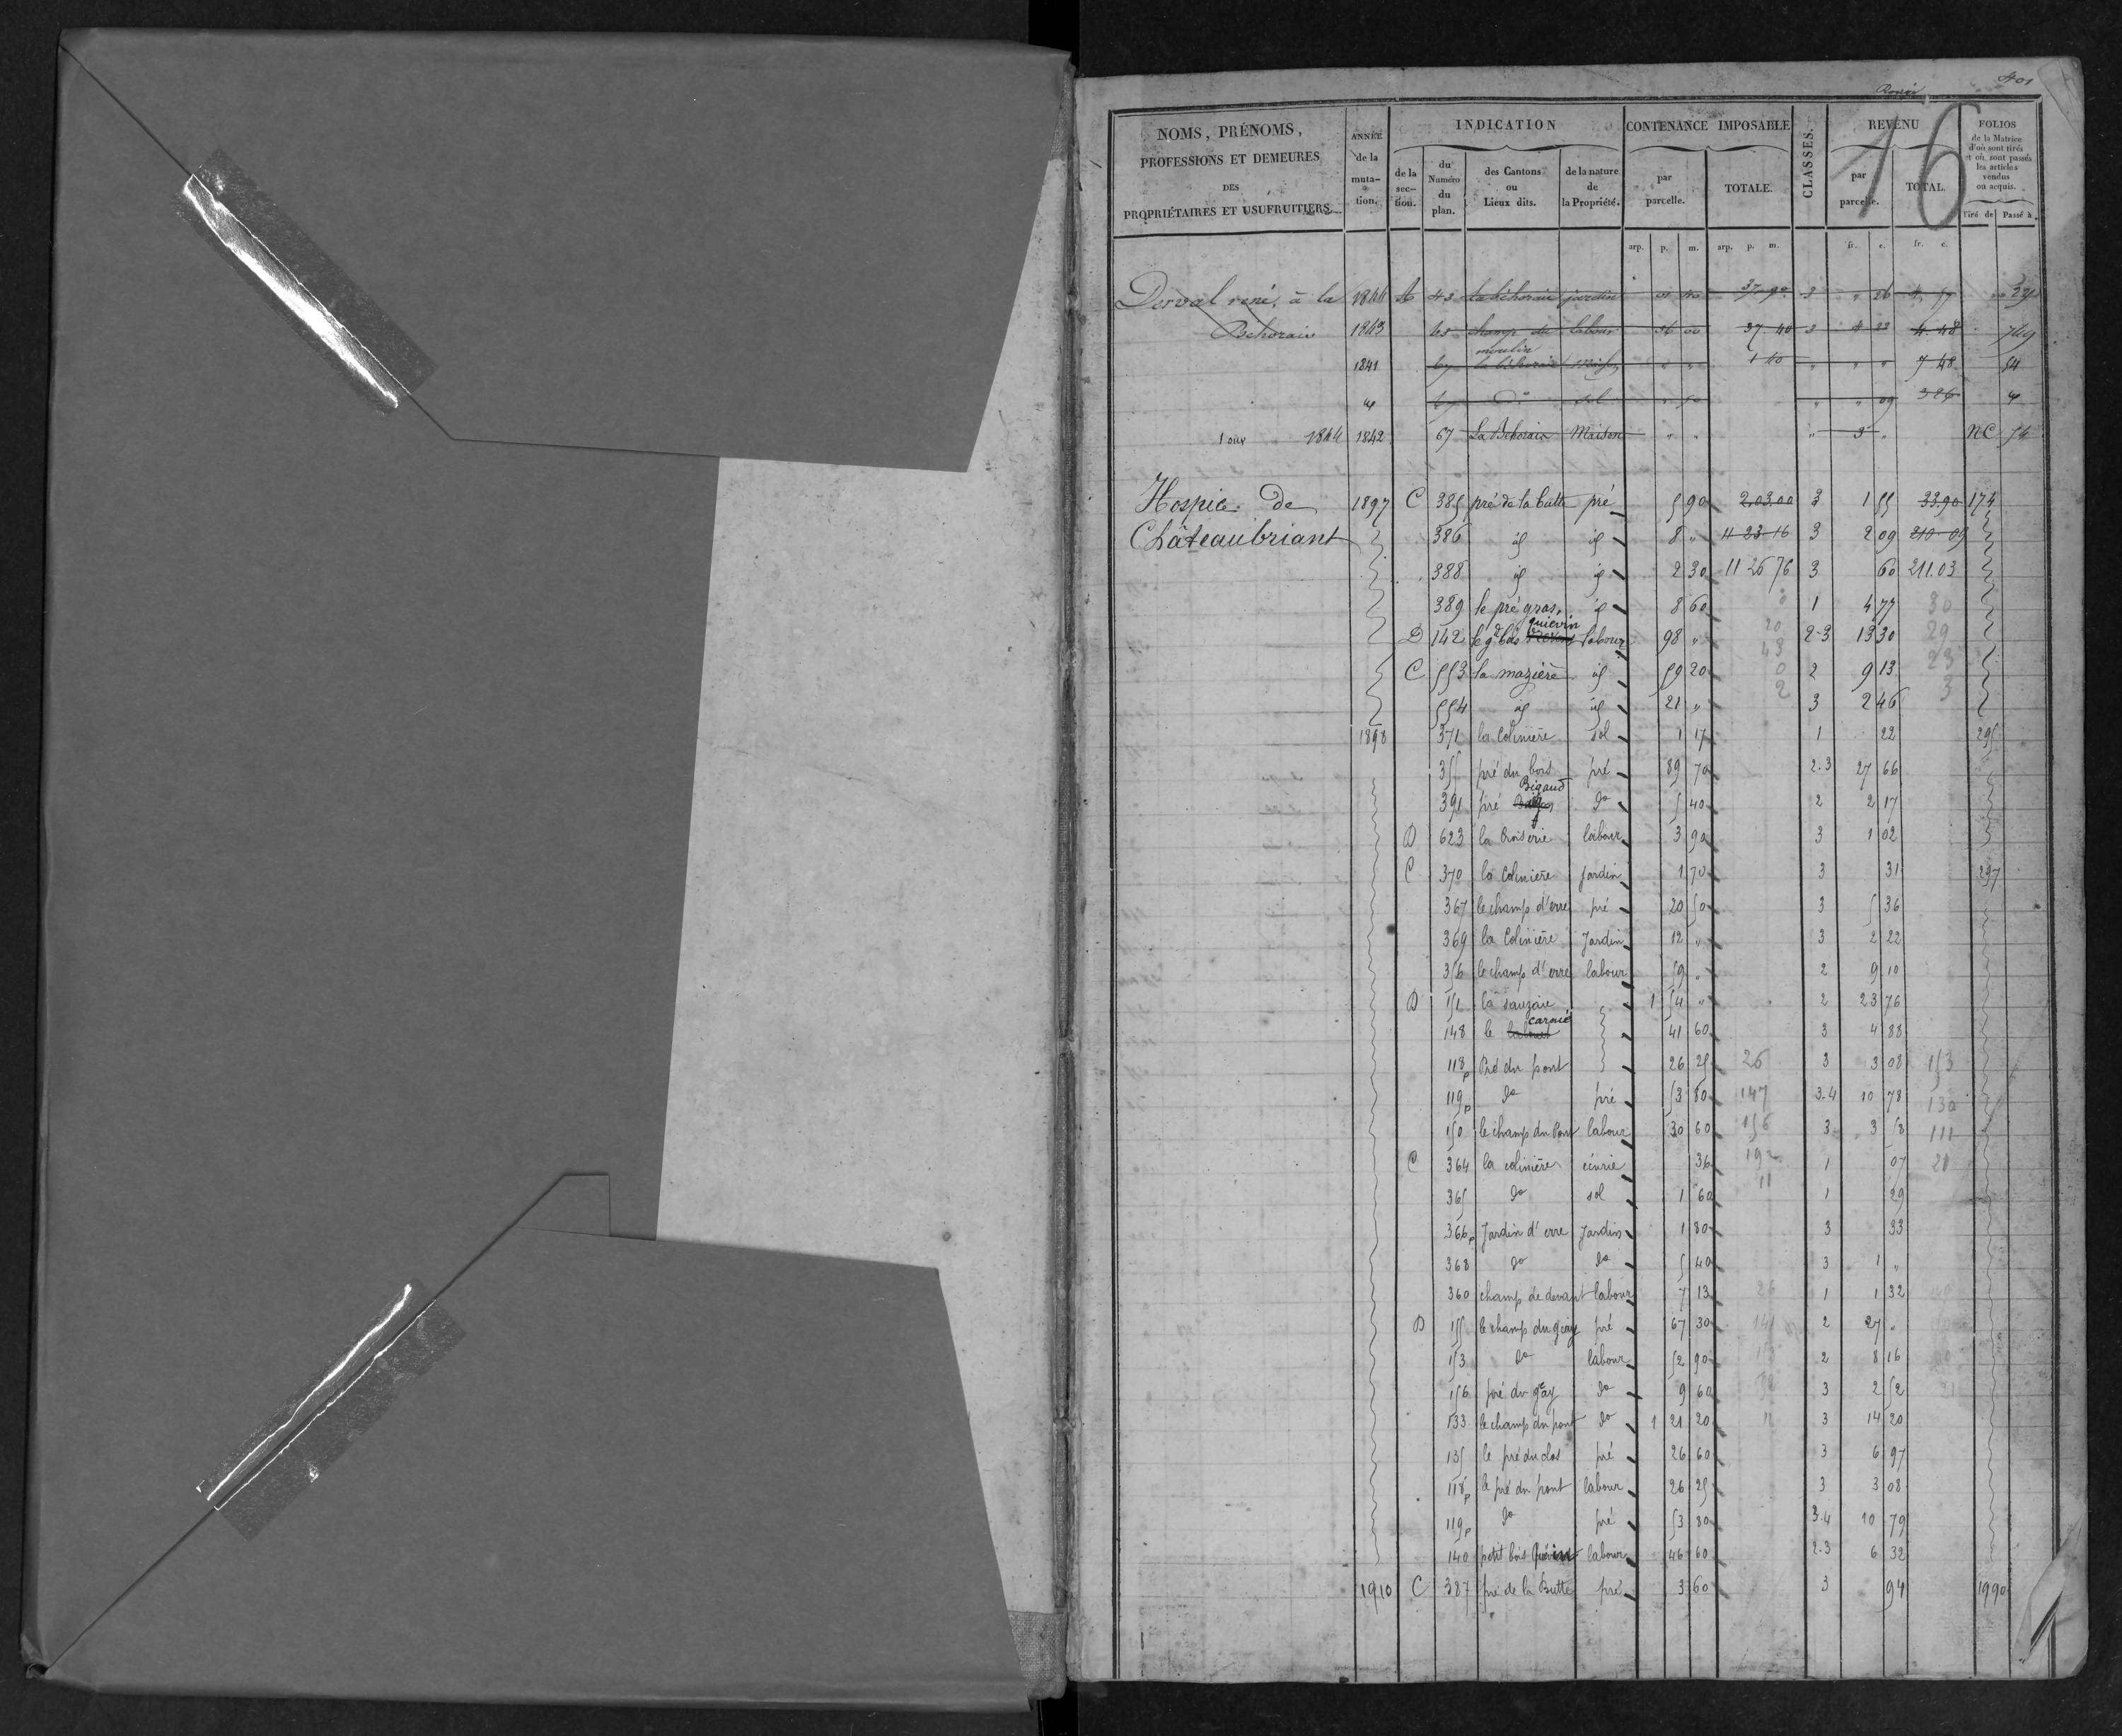 401
16
NOMS, PRÉNOMS, PROFESSIONS ET DEMEURES DES PROPRIÉTAIRES ET USUFRUITIERS.
ANNÉE de la mutation.
INDICATION
de la section.
du Numéro du plan.
des Cantons ou Lieux dits.
de la nature de la Propriété.
CONTENANCE IMPOSABLE
par parcelle.
TOTALE.
CLASSES.
REVENU
par parcelle.
TOTAL.
FOLIOS de la Matrice d'où sont tirés et où sont passés les articles vendus ou acquis.
Tiré de Passé à
arp. p. m. arp. p. m. fr. c. fr. c.
Derval rené, à la 1844 A 43 la béhorais jardin 37 90 3 " 26
Béhorais 1843 champ du moulin labour 36 00 37 40 3 4 22 4 48 749
1841 67 la béhorais " " 1 40 " " " 7 48 54
67 do sol " 09 386
1844 1842 67 La Béhorais Maison " " " 3 " NC 74
Hospice de 1897 C 385 pré de la butte pré 5 90 2,03,00 3 1 55 33.90 174
Châteaubriant 386 id id 8 " 11 23 16 3 2 09 210 09
388 id id 2 30 11 26 76 3 60 211.03
389 le pré gras id 8 60 1 4 77
D 142 le gd bois quievin labour 98 " 2-3 13 30
C 553 la mazière id 59 20 2 9 13
554 id id 21 " 3 2 46
1898 371 la Colinière sol 1 17 1 22 295
355 pré du bois pré 89 70 2.3 27 66
391 pré Bigaud do 5 40 2 2 17
D 623 la Croiserie labour 3 90 3 1 02
C 370 la Colinière Jardin 1 70 3 31 297
367 le champ d'erre pré 20 50 3 5 36
369 la Colinière Jardin 12 " 3 2 22
356 le champ d'erre labour 59 " 2 9 10
D 151 la sauzaie 1 54 " 2 23 76
148 le carnié 41 60 3 4 88
118p Pré du pont 26 25 26 3 3 08 153
119p do pré 53 80 147 3.4 10 78 130
150 le champ du Pont labour 30 60 156 3 3 58 111
C 364 la colinière écurie 36 192 1 07 21
365 do sol 1 60 11 1 29
366p Jardin d'erre Jardin 1 80 3 33
368 do do 5 40 3 1 "
360 champ de devant labour 7 13 1 1 32
D 155 le champ du geay pré 67 30 2 27 "
153 do labour 52 90 2 8 16
156 pré du geay do 9 60 3 2 52
133 le champ du pont do 1 21 20 3 14 20
135 le pré du clos pré 26 60 3 6 97
118p le pré du pont labour 26 25 3 3 08
119p do pré 53 80 3.4 10 79
140 petit bois labour 46 60 2.3 6 32
1910 C 387 pré de la Butte pré 3 60 3 94 1990